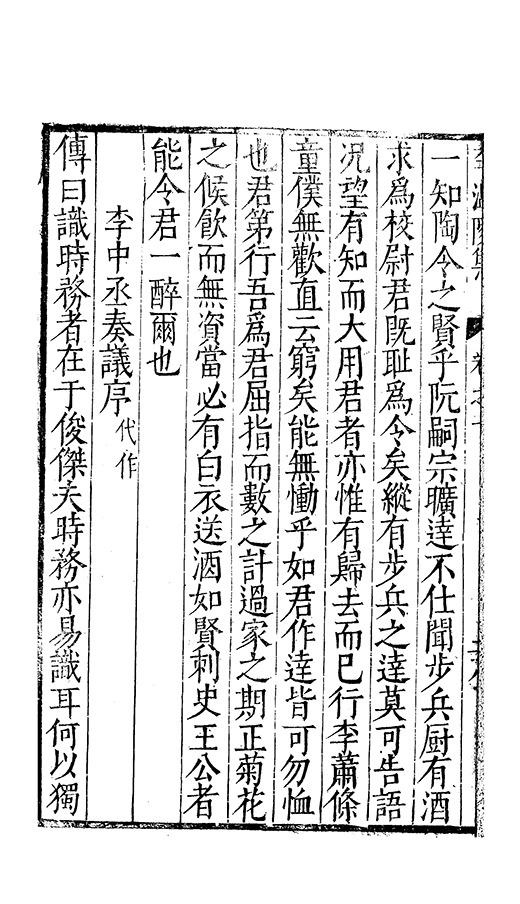 一知陶令之賢乎阮嗣宗曠達不仕聞步兵厨有酒
求爲校尉君既耻爲令矣縱有步兵之達莫可告語
况望有知而大用君者亦惟有歸去而已行李蕭條
童僕無歡直云窮矣能無慟乎如君作達皆可勿恤
也君第行吾爲君屈指而數之計過家之期正菊花
之候飲而無資當必有白衣送酒如賢刺史王公者
能令君一醉爾也
李中丞奏議序代作
傳曰識時務者在于俊傑夫時務亦易識耳何以獨